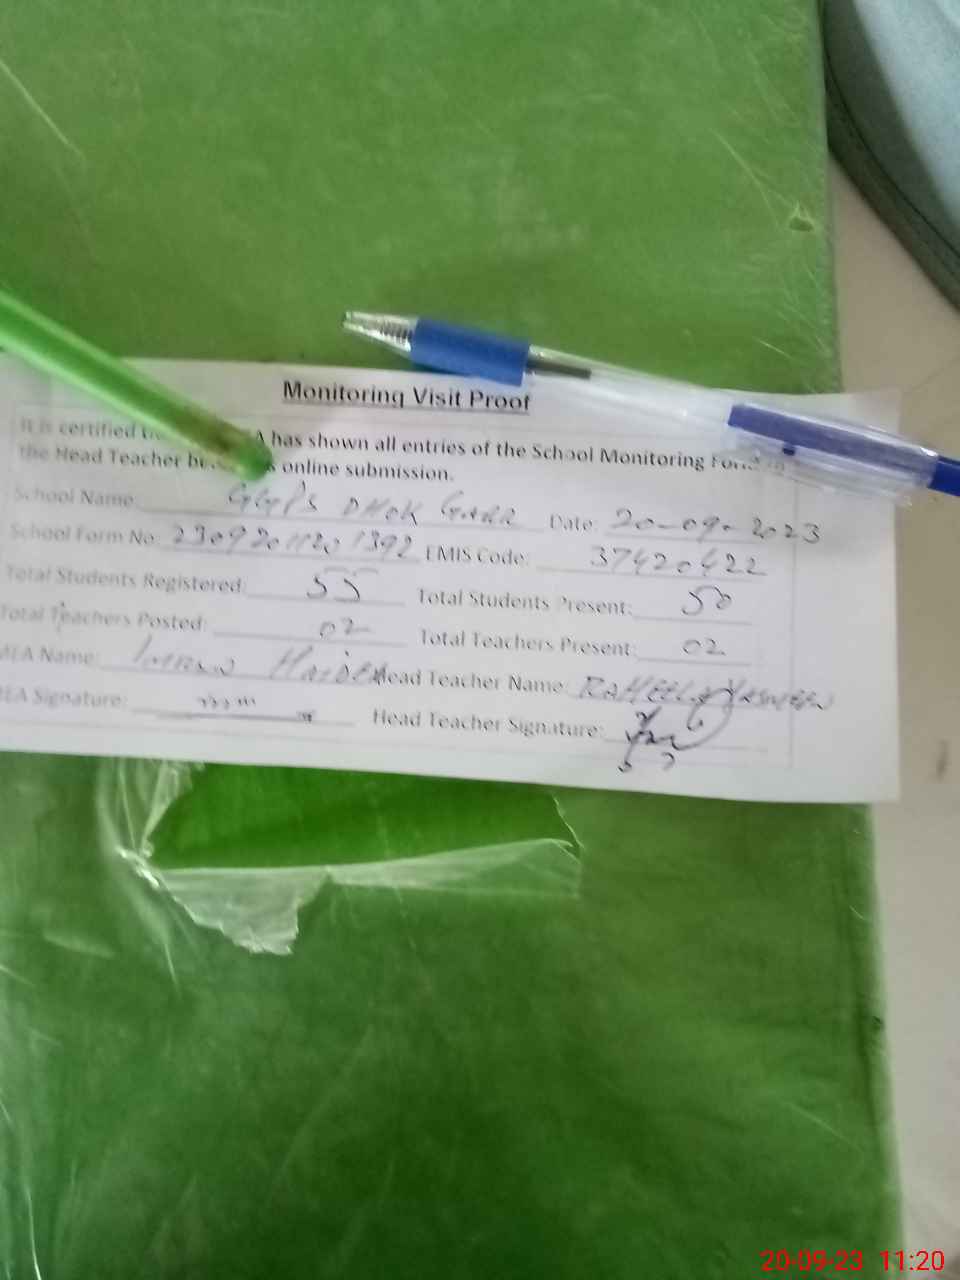 Monitoring Visit Proof
It is certified A has shown all entries of the School Monitoring Form
the Head Teacher online submission.
School Name: GGPS DHOK GARR Date: 20-09-2023
School Form No. 23092011201392 EMIS Code: 37420422
Total Students Registered: 55 Total Students Present: 50
Total Teachers Posted: 02 Total Teachers Present: 02
MEA Name: Head Teacher Name: RAHEELA YASMEEN
MEA Signature: Head Teacher Signature:
20-09-23 11:20